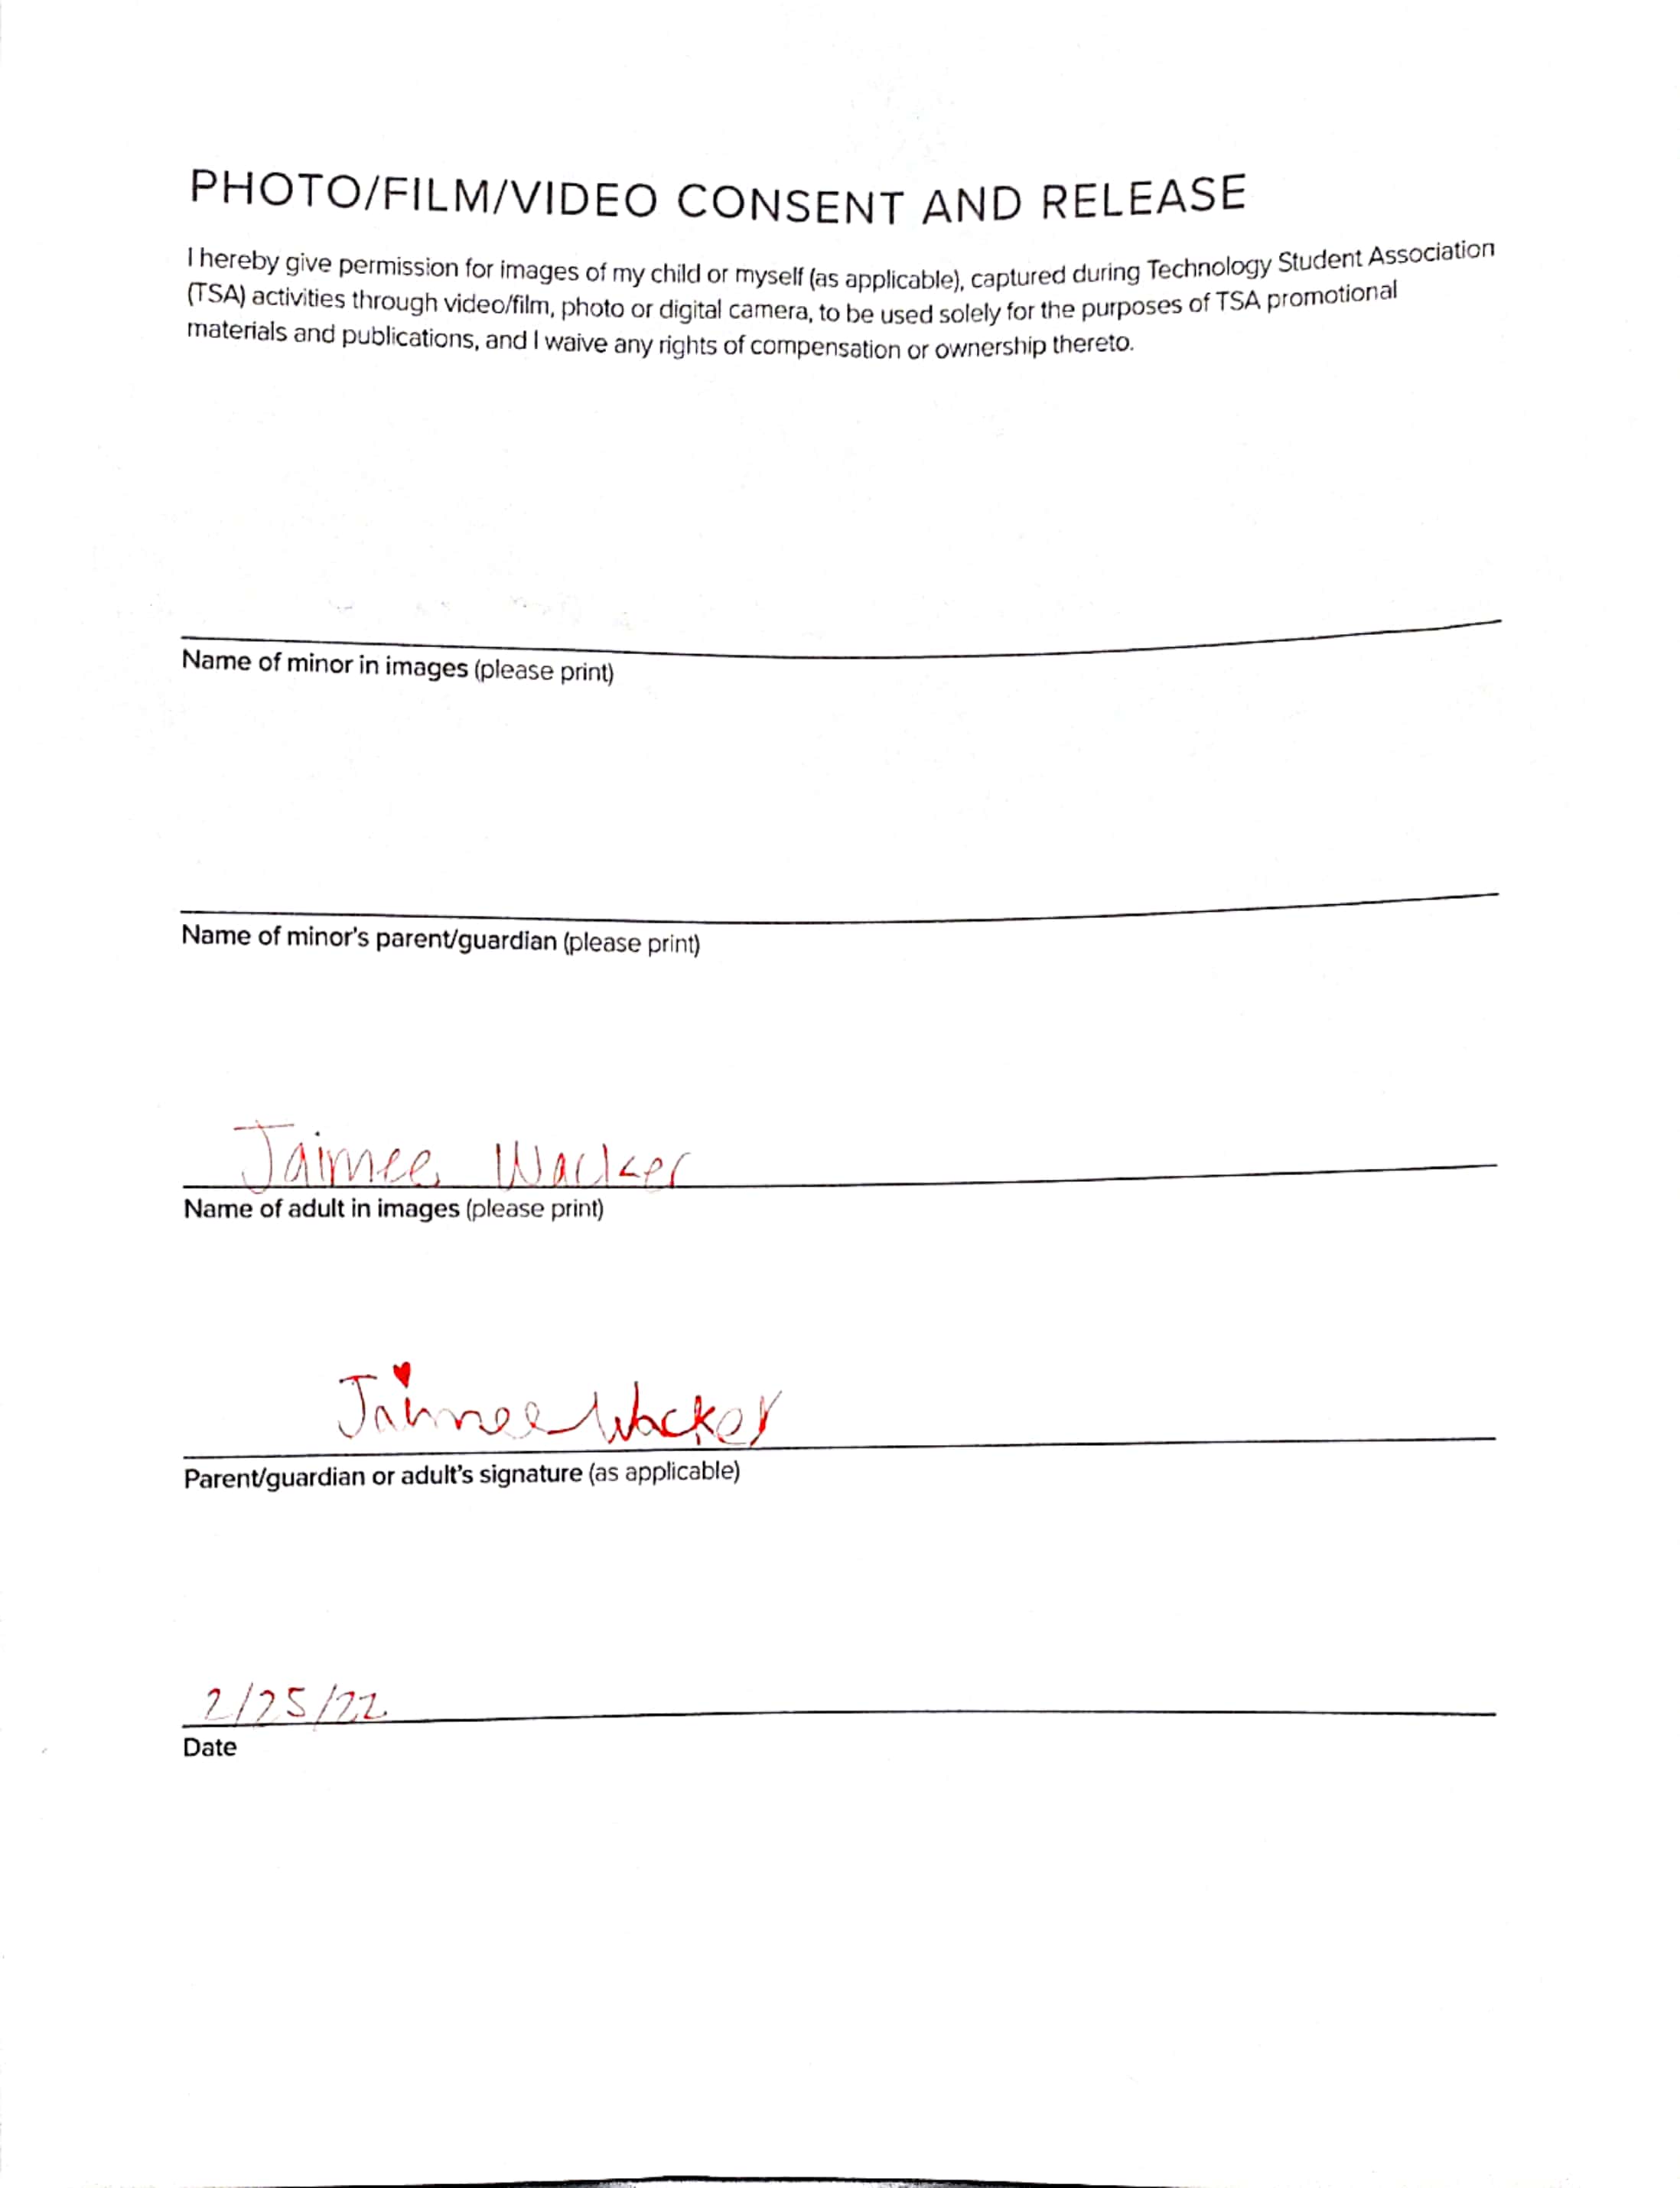 PHOTO/FILM/VIDEO CONSENT AND RELEASE
I hereby give permission for images of my child or myself (as applicable), captured during Technology Student Association
(TSA) activities through video/film, photo or digital camera, to be used solely for the purposes of TSA promotional
materials and publications, and I waive any rights of compensation or ownership thereto.
Name of minor in images (please print)
Name of minor's parent/guardian (please print)
Jaimee Wacker
Name of adult in images (please print)
Jaimee Wacker
Parent/guardian or adult's signature (as applicable)
2/25/22
Date